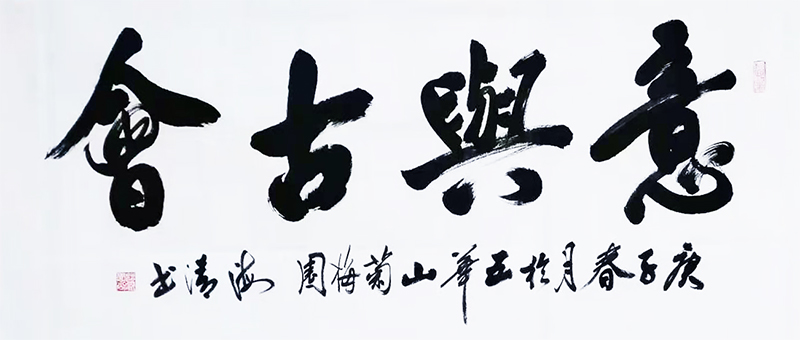 意與古會
庚子春月於五華山菊梅園 海清书